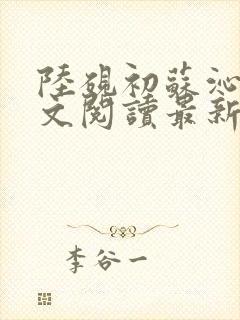 陸硯初蘇沁
文閱讀最新
李谷一